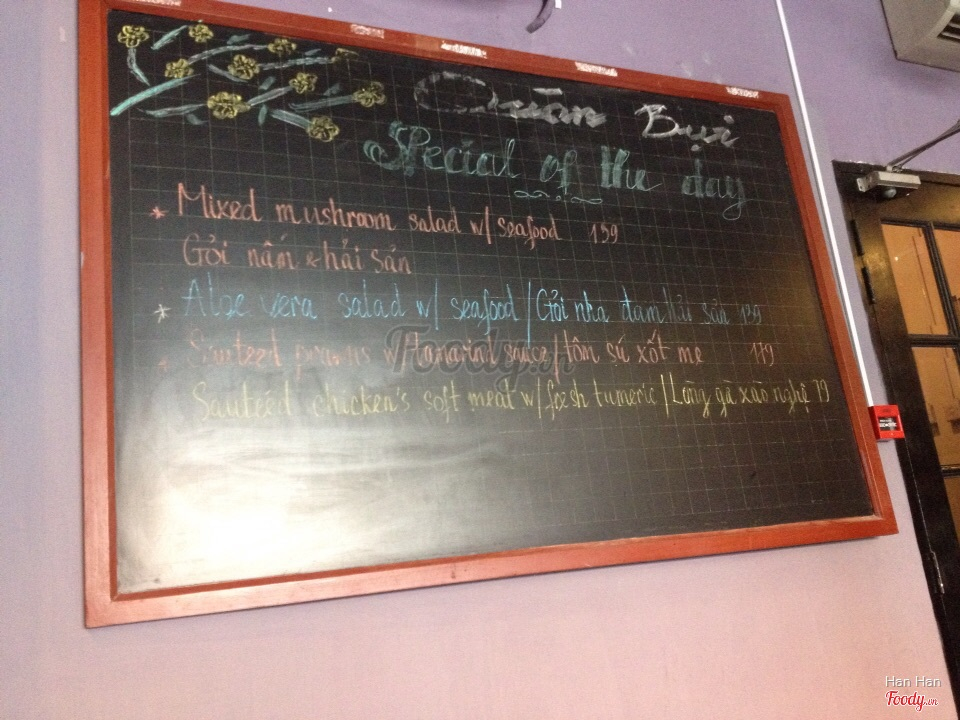 Quán Bụi
Special of the day
* Mixed mushroom salad w/ seafood 159
Gỏi nấm & hải sản
* Aloe vera salad w/ seafood / Gỏi nha đam hải sản 139
* Sauteed prawns w/ tamarind sauce / tôm sú xốt me 179
Sauteed chicken's soft meat w/ fresh tumeric / Lòng gà xào nghệ 79
Foody.vn
Han Han
Foody.vn